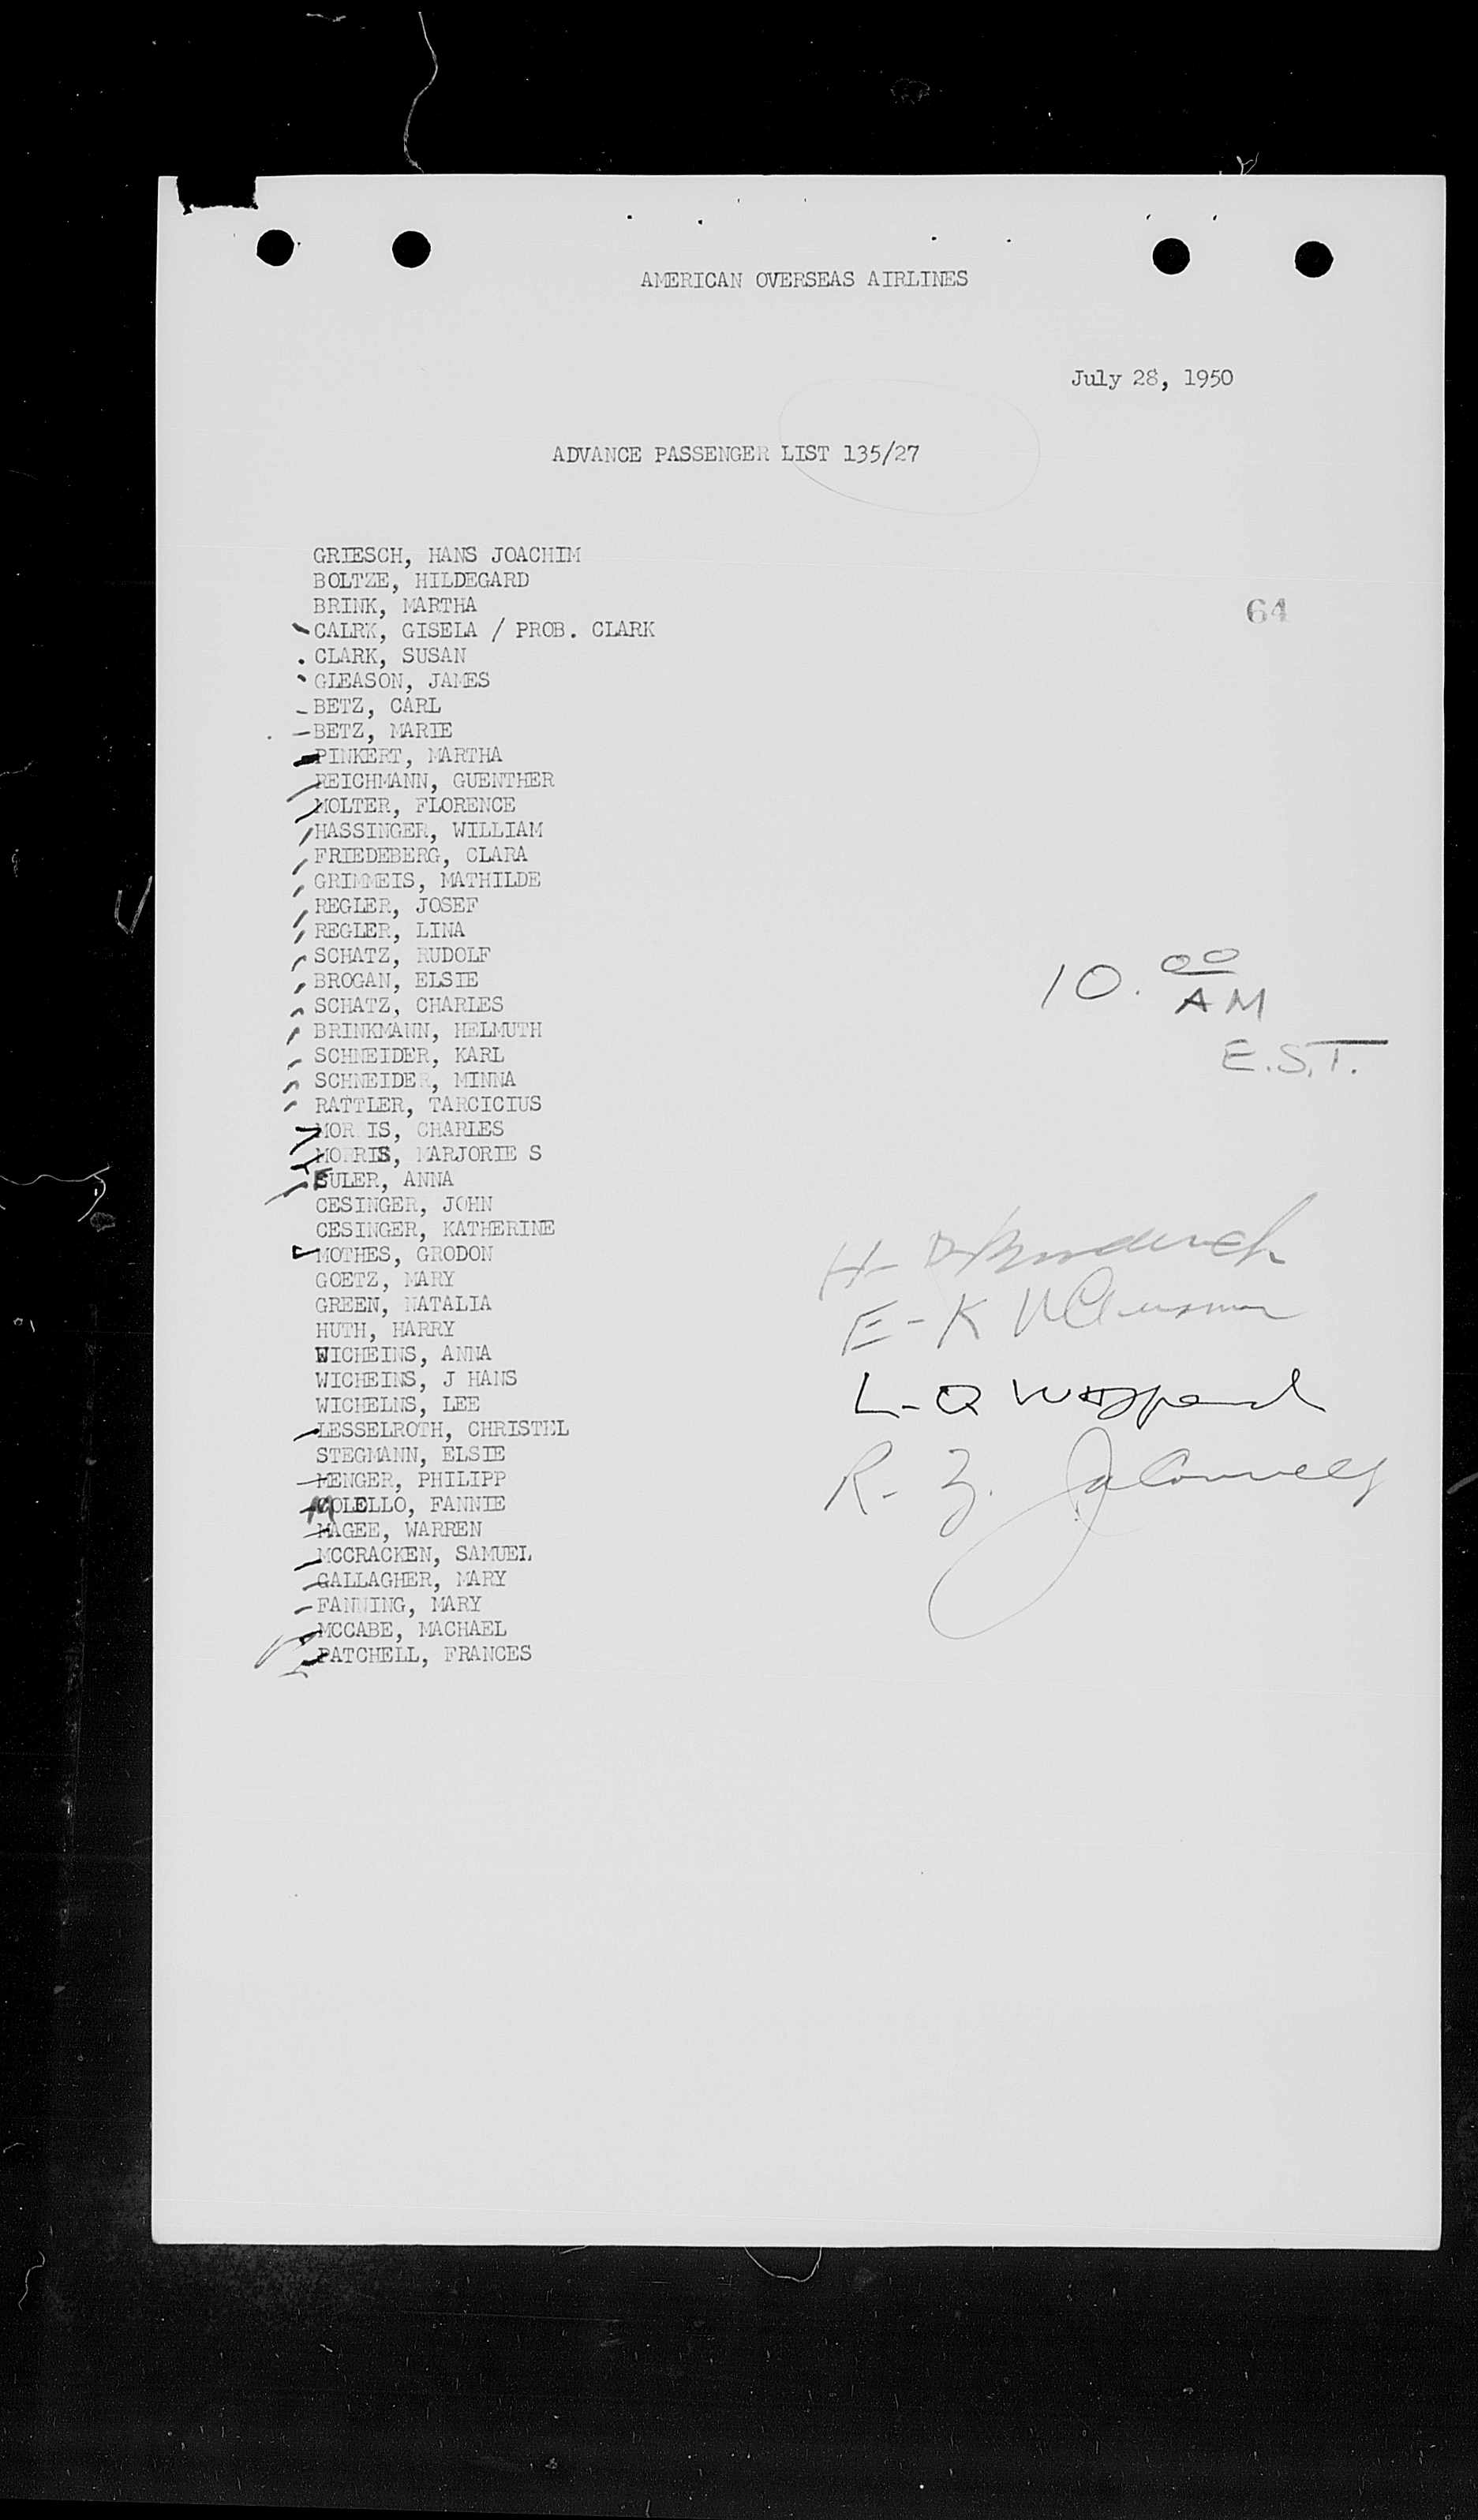 AMERICAN OVERSEAS AIRLINES
July 28, 1950
ADVANCE PASSENGER LIST 135/27
GRIESCH, HANS JOACHIM
BOLTZE, HILDEGARD
BRINK, MARTHA
64
CALRK, GISELA / PROB. CLARK
CLARK, SUSAN
GLEASON, JAMES
BETZ, CARL
BETZ, MARIE
PINKERT, MARTHA
REICHMANN, GUENTHER
MOLTER, FLORENCE
HASSINGER, WILLIAM
FRIEDEBERG, CLARA
GRIMMEIS, MATHILDE
REGLER, JOSEF
REGLER, LINA
SCHATZ, RUDOLF
BROGAN, ELSIE
SCHATZ, CHARLES
BRINKMANN, HELMUTH
SCHNEIDER, KARL
SCHNEIDER, MINNA
RATTLER, TARCICIUS
10.00
AM
E.S.T.
MORRIS, CHARLES
MORRIS, MARJORIE S
EULER, ANNA
CESINGER, JOHN
CESINGER, KATHERINE
MOTHES, GRODON
GOETZ, MARY
GREEN, NATALIA
HUTH, HARRY
WICHEINS, ANNA
WICHEINS, J HANS
WICHELNS, LEE
LESSELROTH, CHRISTEL
STEGMANN, ELSIE
MENGER, PHILIPP
MOLELLO, FANNIE
MAGEE, WARREN
MCCRACKEN, SAMUEL
GALLAGHER, MARY
FANNING, MARY
MCCABE, MACHAEL
PATCHELL, FRANCES
H-D
E-K
L-Q
R-Z.